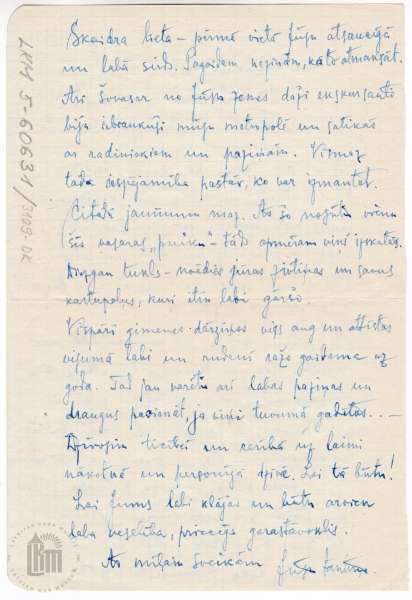 Skaidra lieta – pirmā vietā Jūsu atsaucīgā
un labā sirds. Pagaidām nezinām, kā to atmaksāt.
Arī šovasar no Jūsu zemes daži ekskursanti
bija iebraukuši mūsu metropolē un satikās
ar radiniekiem un paziņām. Vismaz
tāda iespējamība pastāv, ko var izmantot.
Citādi jaunumu maz. Ar šo nosūtu vienu
šīs vasaras „puiku" – tād apmēram viņš izskatās.
Diezgan tukls – noēdies jūras zivtiņas un savus
kartupeļus, kuri itin labi garšo.
Vispāri ģimenes dārziņos viss aug un attīstās
visumā labi un rudenī raža gaidāma uz
goda. Tad jau varētu arī labas paziņas un
draugus pacienāt, ja viņi tuvumā gadītos. . . –
Dzīvosim ticībā un cerībā uz laimi
nākotnē un personīgā dzīvē. Lai tā būtu!
Lai Jums labi klājas un būtu arvien
laba veselība, priecīgs garastāvoklis.
Ar mīļiem sveicieniem Jūsu
LKM 5-60631/3109-DK
LATVIJAS KARA MUZEJS
LKM
LATVIAN WAR MUSEUM